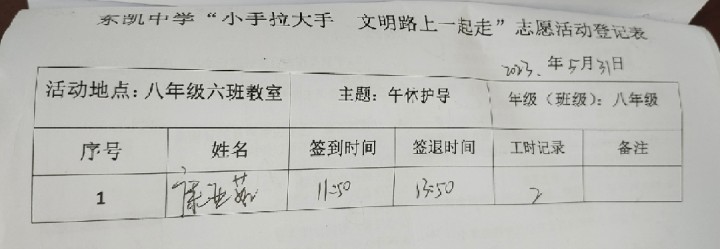 东凯中学“小手拉大手 文明路上一起走”志愿活动登记表
2023.年5月31日
活动地点：八年级六班教室 主题：午休护导 年级（班级）：八年级
序号 姓名 签到时间 签退时间 工时记录 备注
1 11:50 13:50 2